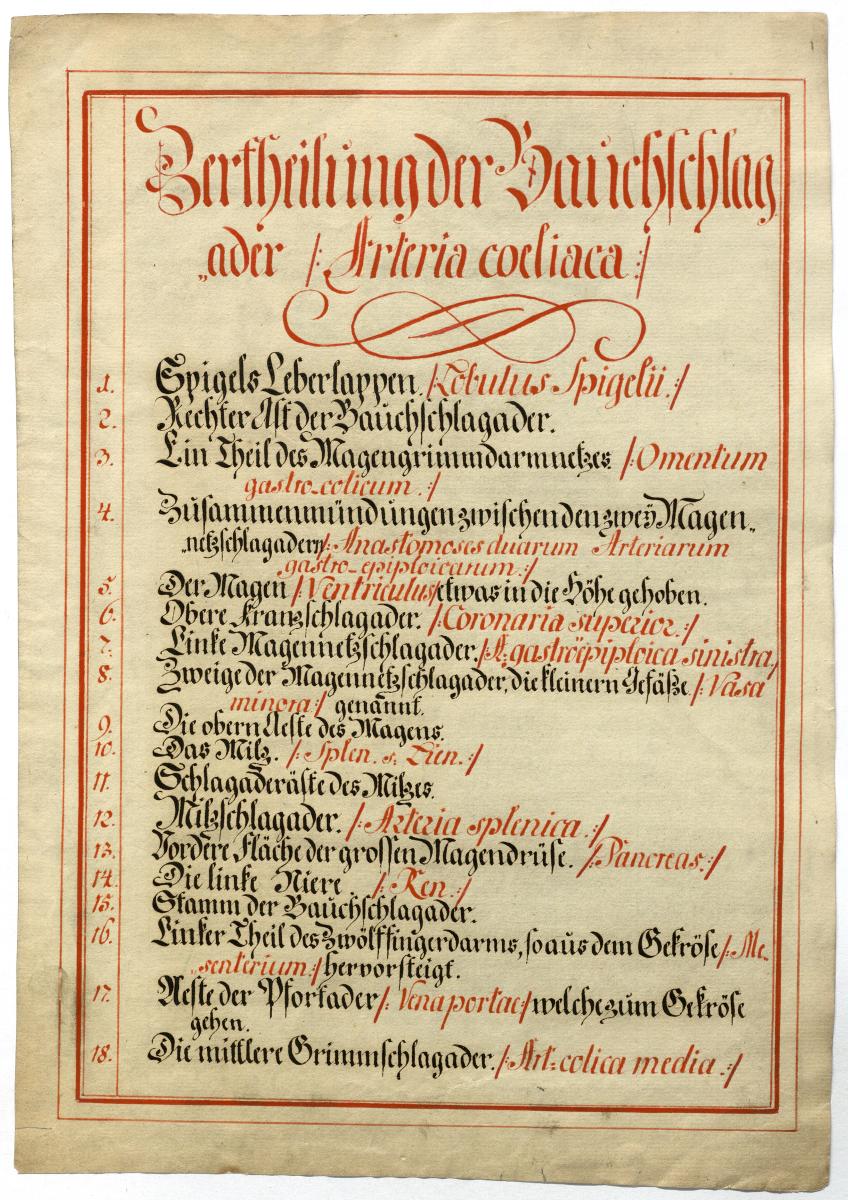 Zertheilung der Bauchschlag
„ader /: Arteria coeliaca :/
1. Spigels Leberlappen. /: Lobulus Spigelii. :/
2. Rechter Ast der Bauchschlagader.
3. Ein Theil des Magengrimmdarmnetzes /: Omentum
gastro-colicum. :/
4. Zusammenmündungen zwischen den zweÿ Magen„
„netzschlagadern /: Anastomoses duarum Arteriarum
gastro-epiploicarum :/
5. Der Magen /: Ventriculus :/ etwas in die Höhe gehoben.
6. Obere Kranzschlagader. /: Coronaria superior. :/
7. Linke Magennetzschlagader. /: A: gastroëpiploica sinistra :/
8. Zweige der Magennetzschlagader, die kleinern Gefäße /: Vasa
minora :/ genannt.
9. Die obern Aeste des Magens.
10. Das Milz. /: Splen. s. Lien. :/
11. Schlagaderäste des Milzes.
12. Milzschlagader. /: Arteria splenica. :/
13. Vordere Fläche der grossen Magendrüse. /: Pancreas. :/
14. Die linke Niere. /: Ren. :/
15. Stamm der Bauchschlagader.
16. Linker Theil des Zwölffingerdarms, so aus dem Gekröse /: Me„
„senterium :/ hervorsteigt.
17. Aeste der Pfortader /: Vena portae :/ welche zum Gekröse
gehen.
18. Die mittlere Grimmschlagader. /: Art: colica media. :/